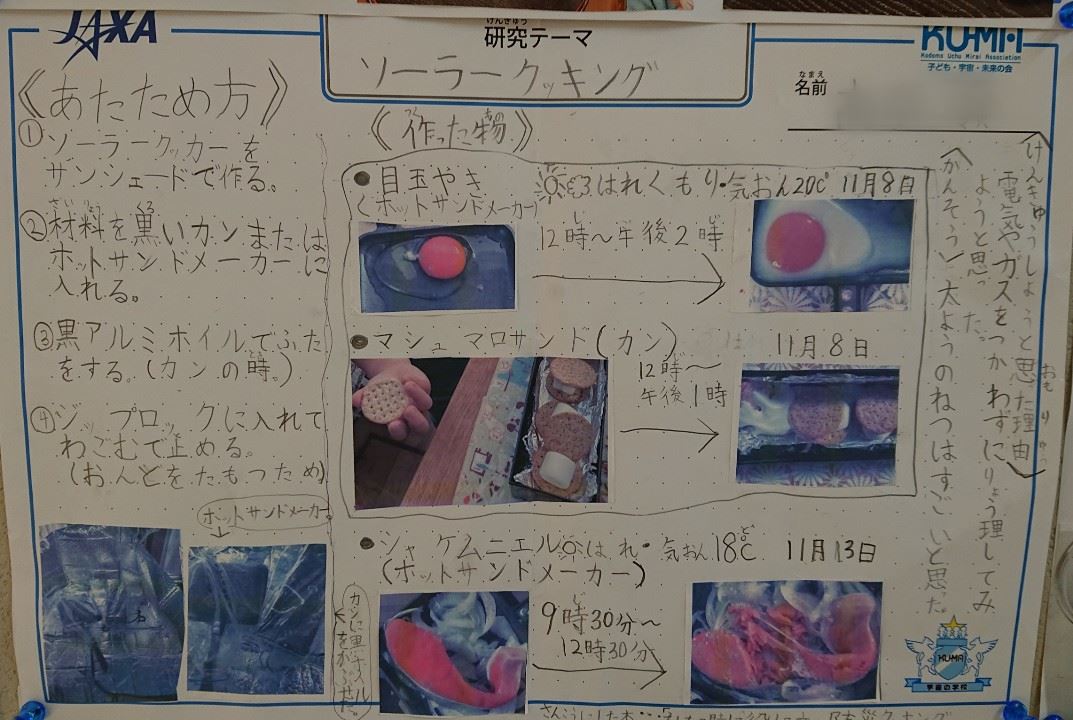 JAXA
研究テーマ
けんきゅう
ソーラークッキング
KU-MA
Kodomo Uchu Mirai Association
子ども・宇宙・未来の会
なまえ
名前
《あたため方》
①ソーラークッカーを
サンシェードで作る。
②材料を黒いカンまたは
ざいりょう くろ
ホットサンドメーカーに
入れる。
③黒アルミホイルでふた
をする。(カンの時。)
④ジップロックに入れて
わごむで止める。
(おんどをたもつため)
ホットサンドメーカー
《作った物》
●目玉やき
(ホットサンドメーカー)
はれくもり・気おん20℃ 11月8日
12時～午後2時
●マシュマロサンド(カン)
11月8日
12時～
午後1時
●シャケムニエル
はれ・気おん18℃ 11月13日
(ホットサンドメーカー)
9時30分～
12時30分
〈けんきゅうしようと思った理由〉
電気やガスをつかわずにりょう理してみ
ようと思った。
〈かんそう〉太ようのねつはすごいと思った。
KU-MA
宇宙の学校